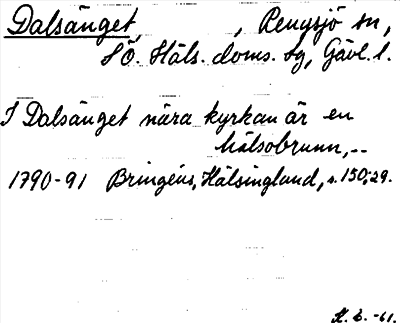 Dalsänget, , Rengsjö sn,
SÖ. Häls. doms. sg, Gävl. l.
I Dalsänget nära kyrkan är en
hälsobrunn,--
1790-91 Bringéus, Hälsingland, s. 150; 29.
K. L. -61.